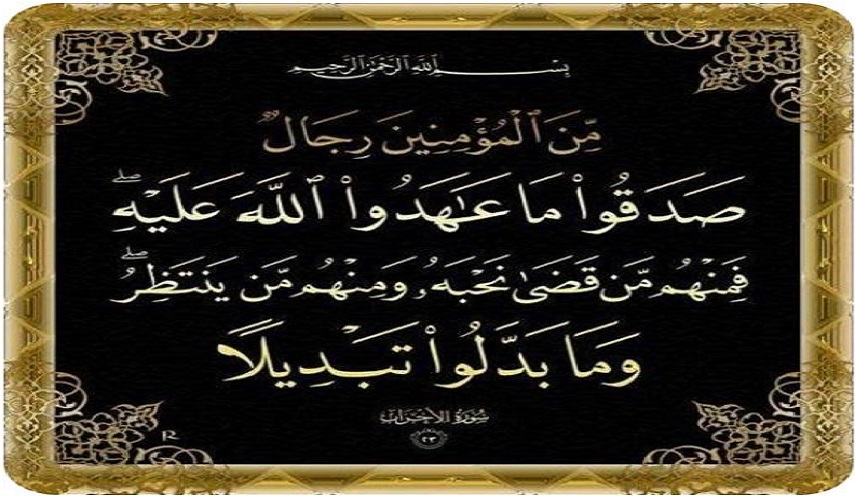 بِسْمِ ٱللَّهِ ٱلرَّحْمَٰنِ ٱلرَّحِيمِ
مِّنَ ٱلْمُؤْمِنِينَ رِجَالٌ
صَدَقُوا۟ مَا عَـٰهَدُوا۟ ٱللَّهَ عَلَيْهِ ۖ
فَمِنْهُم مَّن قَضَىٰ نَحْبَهُۥ وَمِنْهُم مَّن يَنتَظِرُ ۖ
وَمَا بَدَّلُوا۟ تَبْدِيلًا
سُورَةُ الأَحْزَاب
٢٣